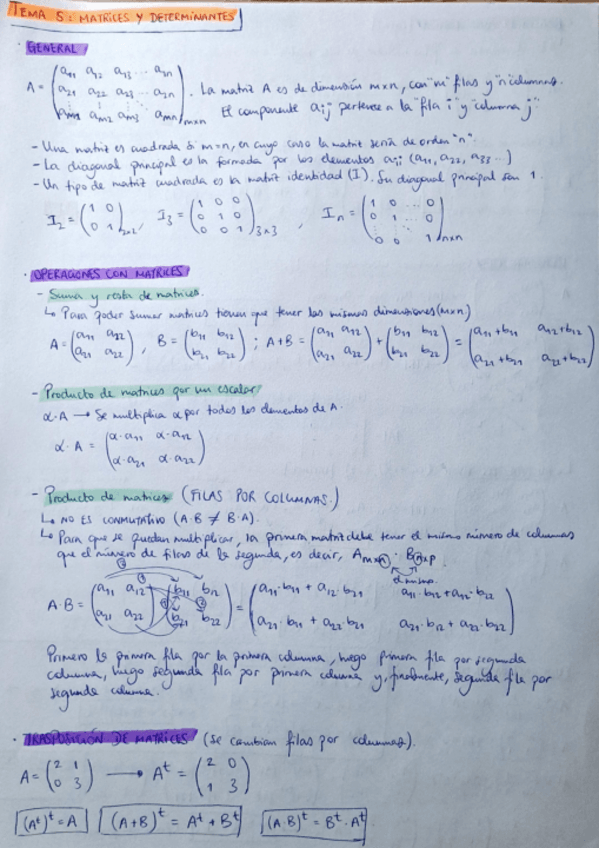 TEMA 5: MATRICES Y DETERMINANTES
· GENERAL
A = (a11 a12 a13 ... a1n / a21 a22 a23 ... a2n / ⋮ ⋮ ⋮ / am1 am2 am3 amn)mxn . La matriz A es de dimensión mxn, con "m" filas y "n" columnas.
El componente aij pertenece a la "fila i" y "columna j"
- Una matriz es cuadrada si m=n, en cuyo caso la matriz sería de orden "n".
- La diagonal principal es la formada por los elementos aii (a11, a22, a33 ...)
- Un tipo de matriz cuadrada es la matriz identidad (I). Su diagonal principal son 1.
I2 = (1 0 / 0 1)2x2 , I3 = (1 0 0 / 0 1 0 / 0 0 1)3x3 , In = (1 0 ... 0 / 0 1 ... 0 / ⋮ ⋮ ⋮ / 0 0 1)nxn
· OPERACIONES CON MATRICES
- Suma y resta de matrices.
↳ Para poder sumar matrices tienen que tener las mismas dimensiones (mxn)
A = (a11 a12 / a21 a22) , B = (b11 b12 / b21 b22) ; A+B = (a11 a12 / a21 a22) + (b11 b12 / b21 b22) = (a11+b11 a12+b12 / a21+b21 a22+b22)
- Producto de matrices por un escalar
α·A → Se multiplica α por todos los elementos de A.
α·A = (α·a11 α·a12 / α·a21 α·a22)
- Producto de matrices (FILAS POR COLUMNAS.)
↳ NO ES CONMUTATIVO (A·B ≠ B·A).
↳ Para que se puedan multiplicar, la primera matriz debe tener el mismo número de columnas
que el número de filas de la segunda, es decir, Amxn · Bnxp
el mismo.
A·B = (a11 a12 / a21 a22) (b11 b12 / b21 b22) = (a11·b11 + a12·b21 a11·b12 + a12·b22 / a21·b11 + a22·b21 a21·b12 + a22·b22)
Primero la primera fila por la primera columna, luego primera fila por segunda
columna, luego segunda fila por primera columna y, finalmente, segunda fila por
segunda columna.
· TRASPOSICIÓN DE MATRICES (Se cambian filas por columnas).
A = (2 1 / 0 3) → At = (2 0 / 1 3)
(At)t = A (A+B)t = At + Bt (A·B)t = Bt · At